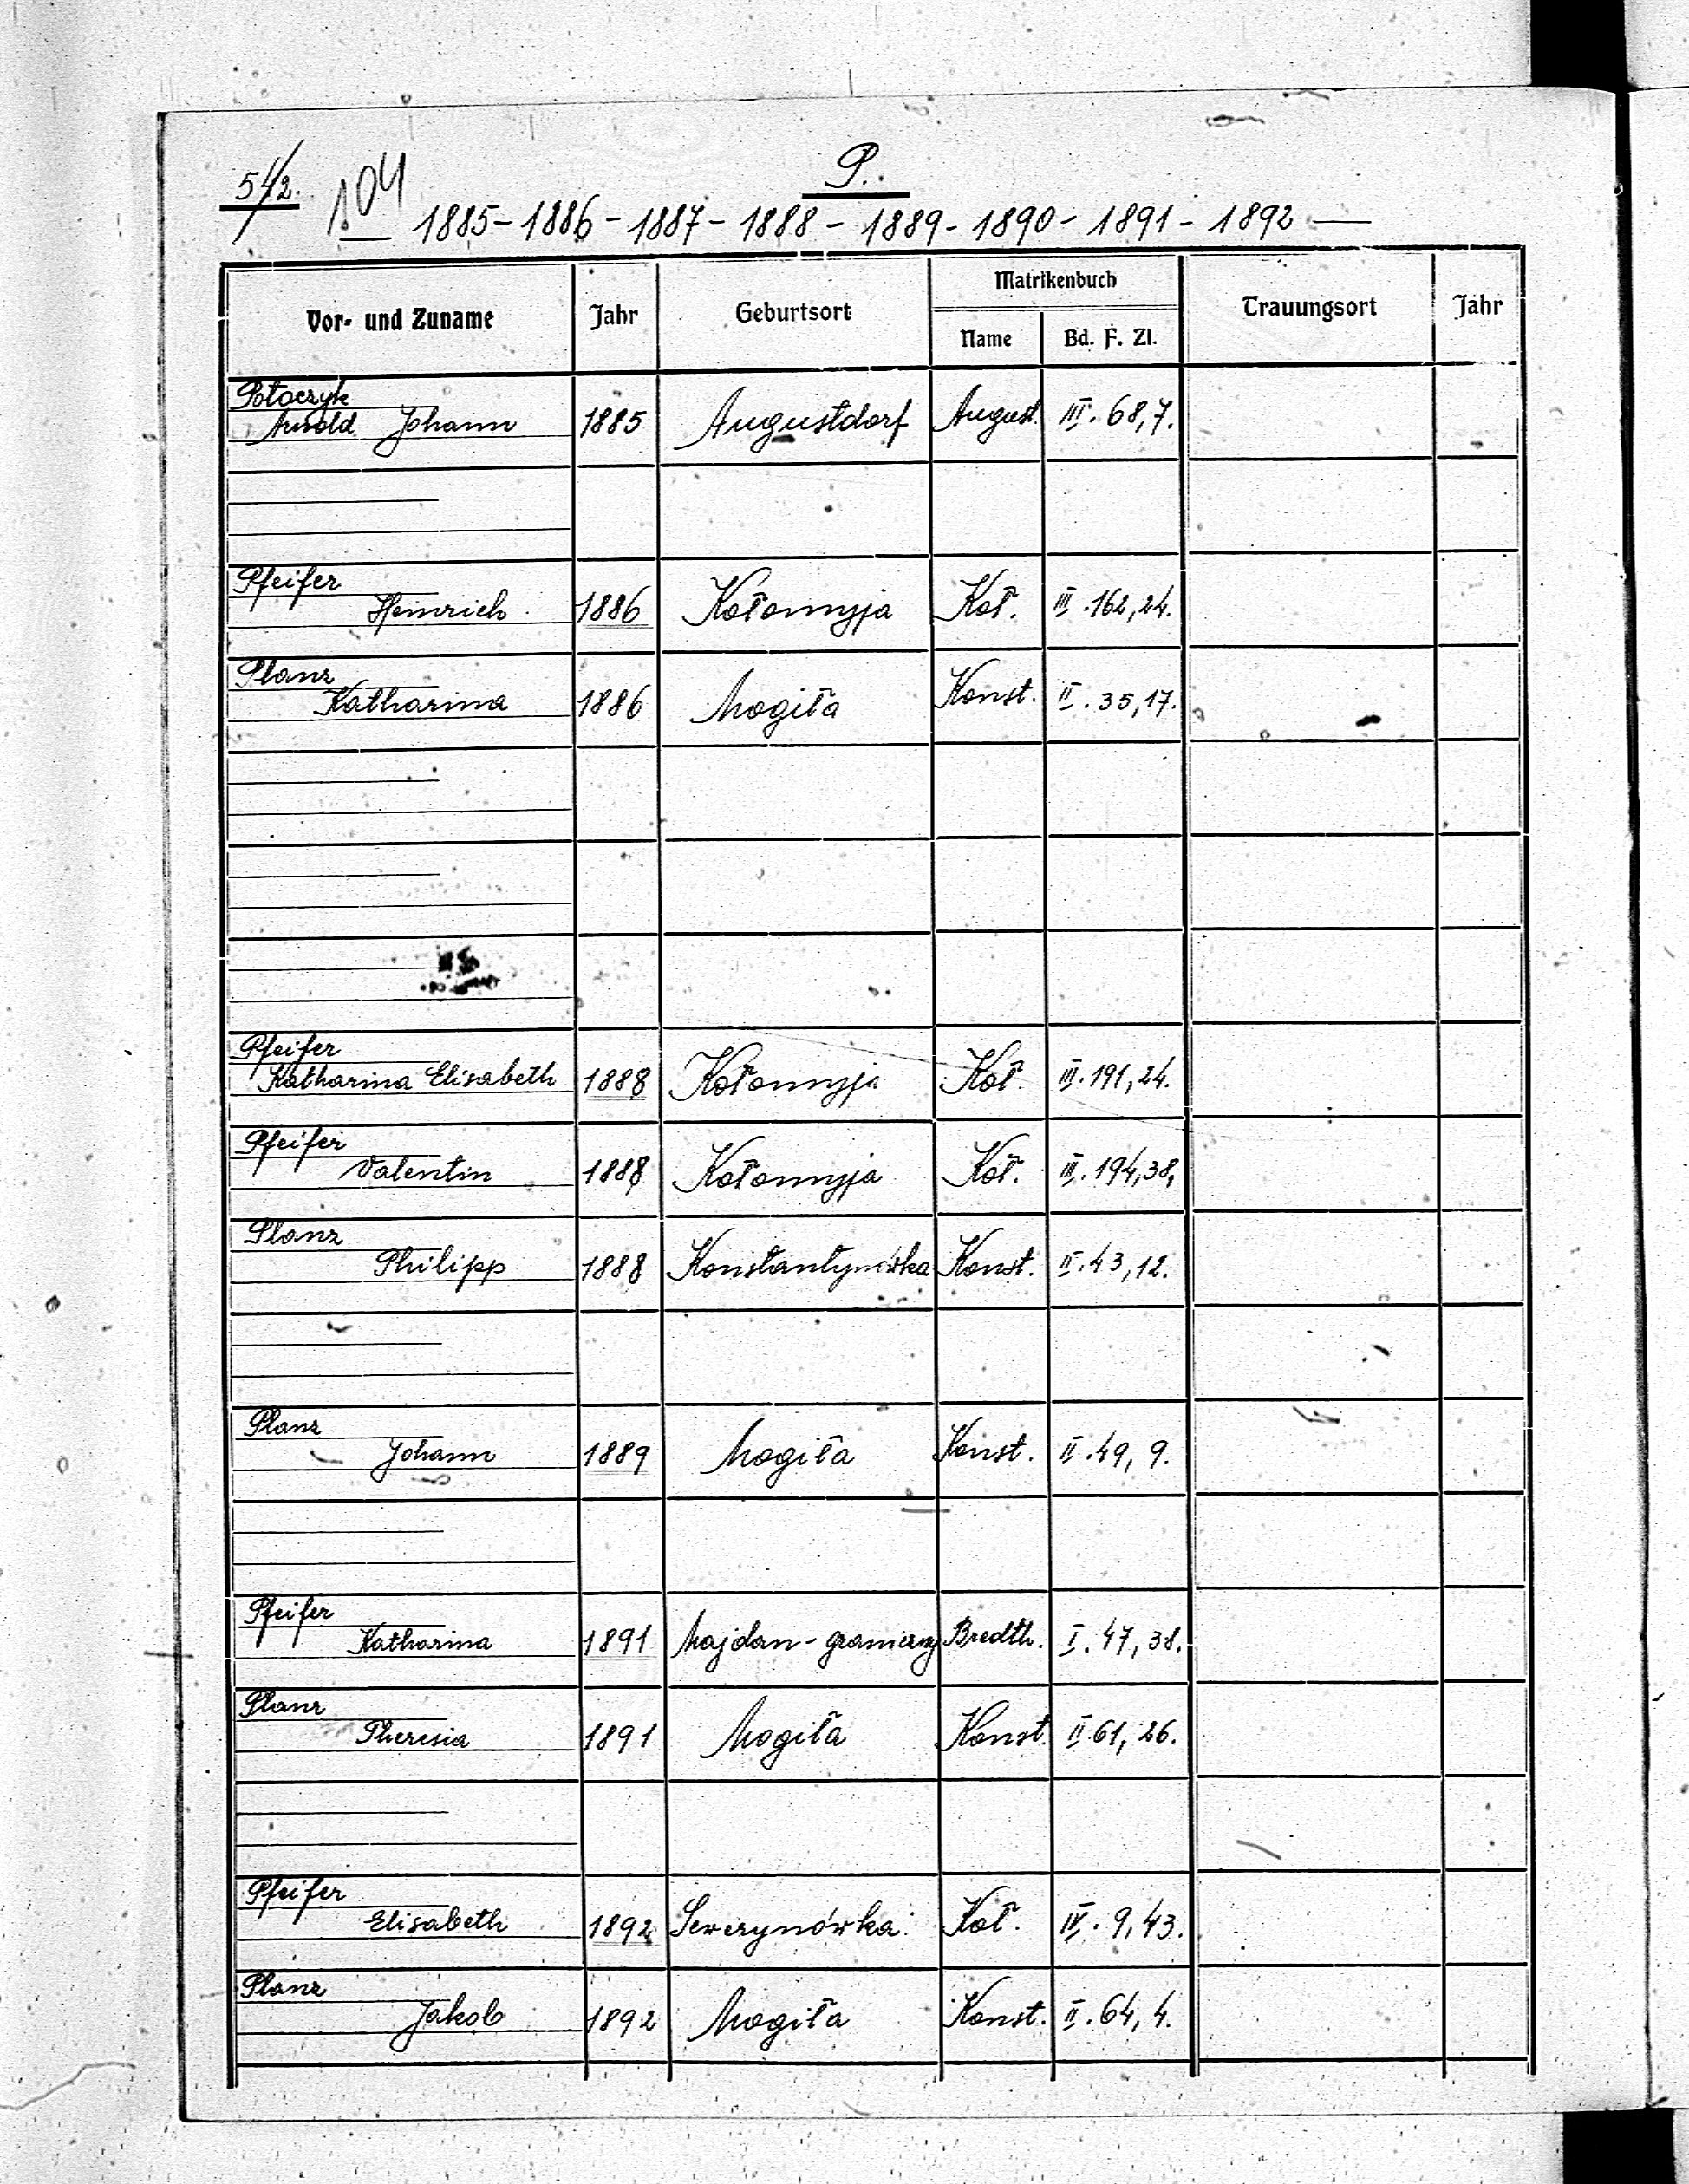 P.
542. 104
1885 - 1886 - 1887 - 1888 - 1889 - 1890 - 1891 - 1892 —
Vor- und Zuname Jahr Geburtsort Matrikenbuch Trauungsort Jahr
Name Bd. F. Zl.
Potoczyk
Arnold Johann 1885 Augustdorf August. III. 68,7.
Pfeifer
Heinrich 1886 Kołomyja Koł. III. 162,24.
Planz
Katharina 1886 Mogiła Konst. II. 35,17.
Pfeifer
Katharina Elisabeth 1888 Kołomyja Koł. III. 191,24.
Pfeifer
Valentin 1888 Kołomyja Koł. III. 194,38,
Planz
Philipp 1888 Konstantynówka Konst. II. 43,12.
Planz
Johann 1889 Mogiła Konst. II. 49, 9.
Pfeifer
Katharina 1891 Majdan-graniczny Bredth. I. 47, 38.
Planz
Theresia 1891 Mogiła Konst. II. 61, 26.
Pfeifer
Elisabeth 1892 Sewerynówka Koł. IV. 9, 43.
Planz
Jakob 1892 Mogiła Konst. II. 64, 4.